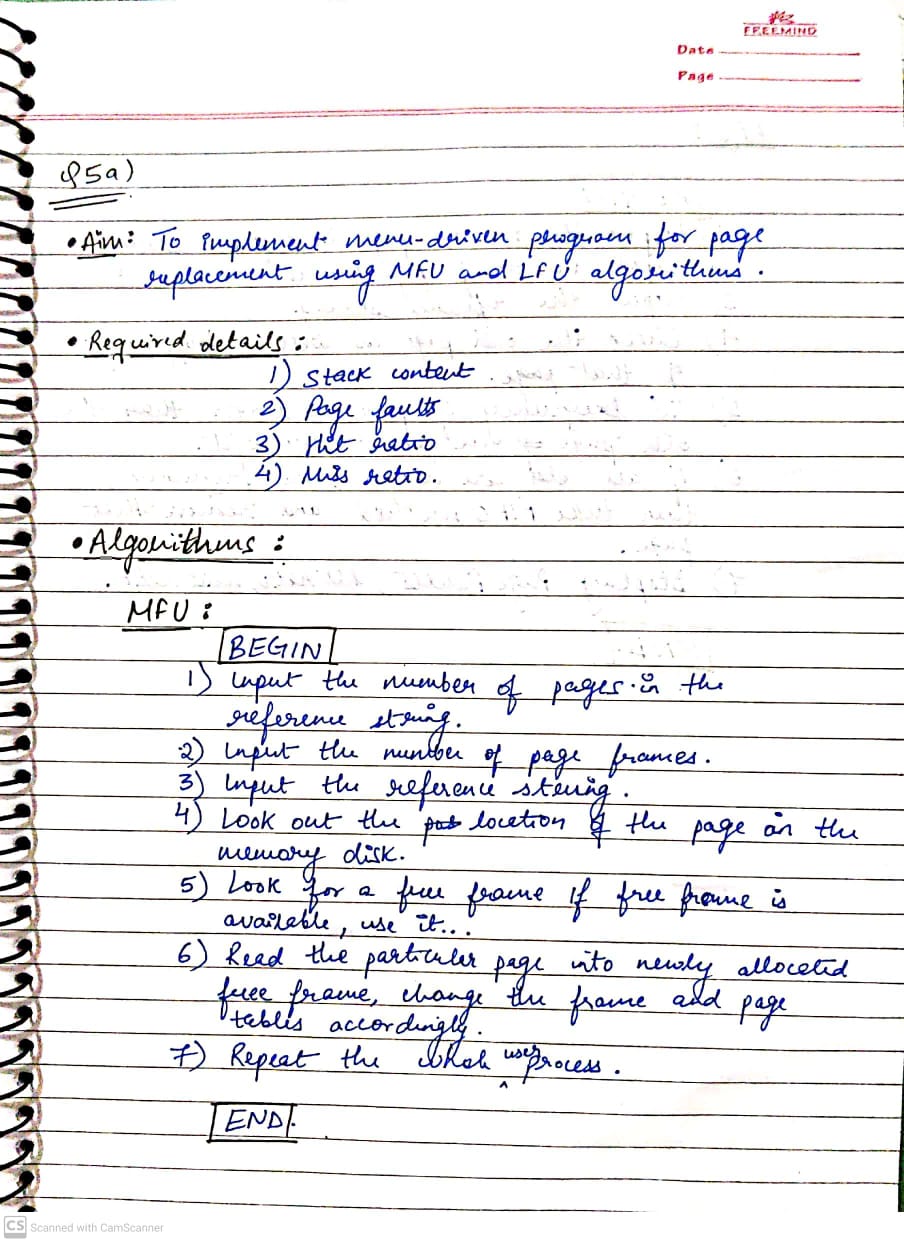 FREEMIND
Date
Page
Q5a)
• Aim: To implement menu-driven program for page
replacement using MFU and LFU algorithms.
• Required details:
1) Stack content
2) Page faults
3) Hit ratio
4) Miss ratio.
• Algorithms:
MFU:
BEGIN
1) Input the number of pages in the
reference string.
2) Input the number of page frames.
3) Input the reference string.
4) Look out the location of the page on the
memory disk.
5) Look for a free frame if free frame is
available, use it...
6) Read the particular page into newly allocated
free frame, change the frame and page
tables accordingly.
7) Repeat the whole user process.
END.
CS Scanned with CamScanner